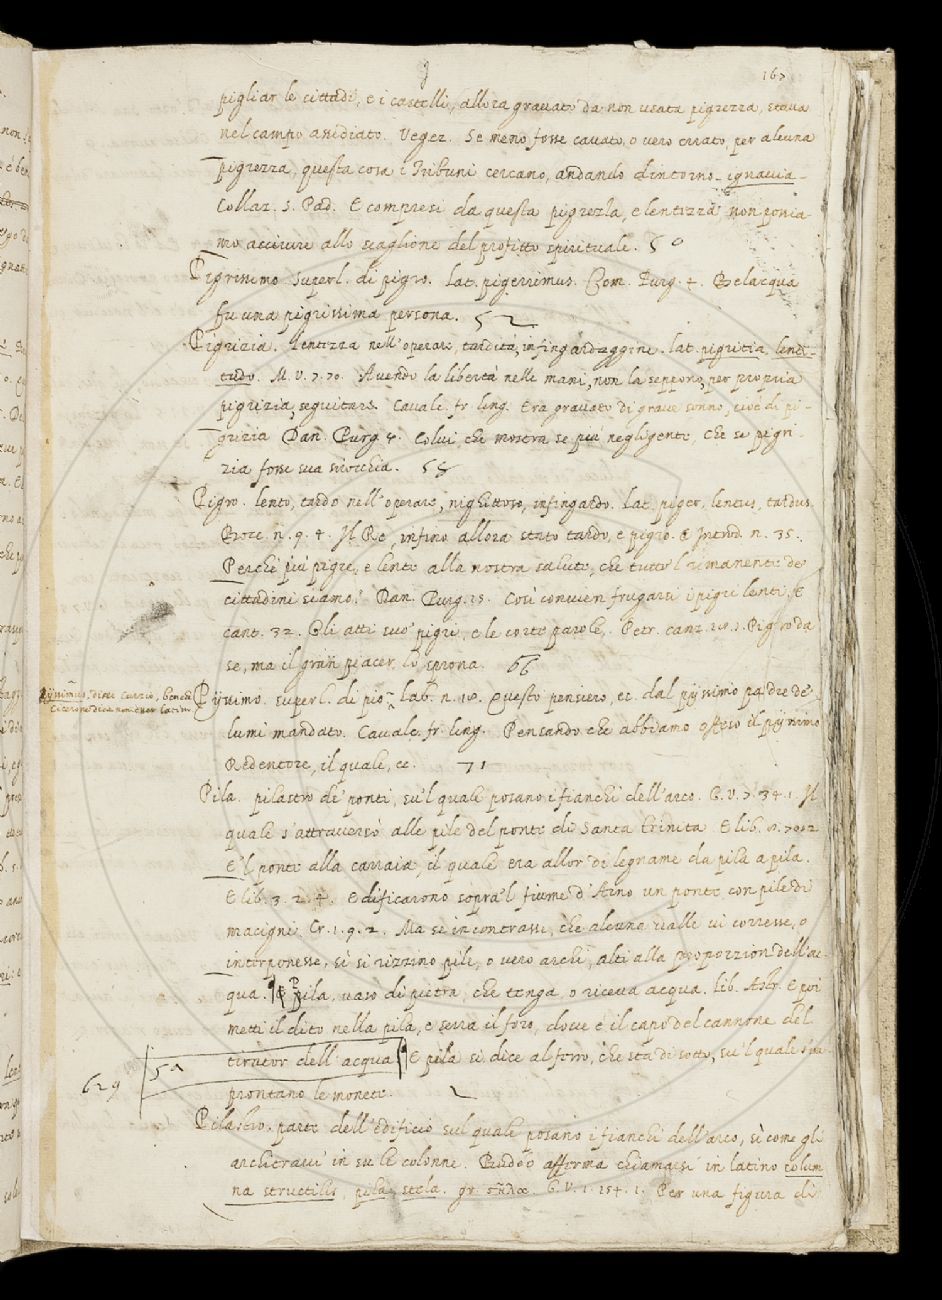 167
pigliar le cittadi, e i castelli, allora gravato da non usata pigrezza, stava
nel campo assediato. Vegez. Se meno fosse cavato, o vero errato, per alcuna
pigrezza, questa cosa i Tribuni cercano, andando dintorno. ignavia.
Collaz. S. Pad. E compresi da questa pigrezza, e lentezza non ponia-
mo accivire allo scaglione del profitto spirituale. 50
Pigrissimo. Superl. di pigro. Lat. pigerrimus. Com. Purg. 4. Belacqua
fu una pigrissima persona. 52
Pigrizia. Lentezza nell'operare, tardità, infingardaggine. lat. pigritia, lenti-
tudo. M. V. 7. 70. Avendo la libertà nelle mani, non la seppono, per propria
pigrizia, seguitare. Cavalc. fr. ling. Era gravato di grave sonno, cioè di pi-
grizia Dan. Purg. 4. Colui che mostra se più negligente, Che se pigri-
zia fosse sua sirocchia. 58
Pigro. lento, tardo nell'operare, nighittoso, infingardo. Lat. piger, lentus, tardus.
Bocc. n. 9. 4. Il Re, infino allora stato tardo, e pigro. E Introd. n. 35.
Perchè più pigre, e lente alla nostra salute, che tutto'l rimanente de'
cittadini siamo? Dan. Purg. 15. Così convien frugarsi i pigri lenti. E
cant. 32. Gli atti suo' pigri, e le corte parole. Petr. canz. Pigro da
se, ma il gran piacer, lo sprona. 66
Piissimus disse Curzio, benché
Cicerone dica non esser latin.
Piissimo. superl. di pio. Lab. n. Questo pensiero, ec. dal piissimo padre de'
lumi mandato. Cavalc. fr. ling. Pensando che abbiamo offeso il piissimo
Redentore, il quale, ec. 71
Pila. pilastro de' ponti, su'l quale posano i fianchi dell'arco. G. V. 7. 34. 1. Il
quale s'attraversò alle pile del ponte di Santa Trinita. E lib.
E'l ponte alla carraia, il quale era allor di legname da pila a pila.
E lib. 3. 2. 4. Edificarono sopra'l fiume d'Arno un ponte con pile di
macigni. Cr. 1. 9. 2. Ma se incontrassi, che alcuna valle vi corresse, o
interponesse, si si rizzino pile, o vero archi, alti alla proporzion dell'ac-
qua. E pila, vaso di pietra, che tenga, o riceva acqua. lib. Astr. E poi
metti il dito nella pila, e serra il foro, dove è il capo del cannone del
tirator dell'acqua. E pila si dice al ferro, che sta di sotto, su'l quale s'im
629 5^a
prontano le monete. 2
Pilastro. parte dell'Edificio sul quale posano i fianchi dell'arco, sì come gli
architravi in su le colonne. Budeo afferma chiamarsi in latino colum
na structilis, pila, stela. gr. στήλαι. G. V. 1. 154. 1. Per una figura di